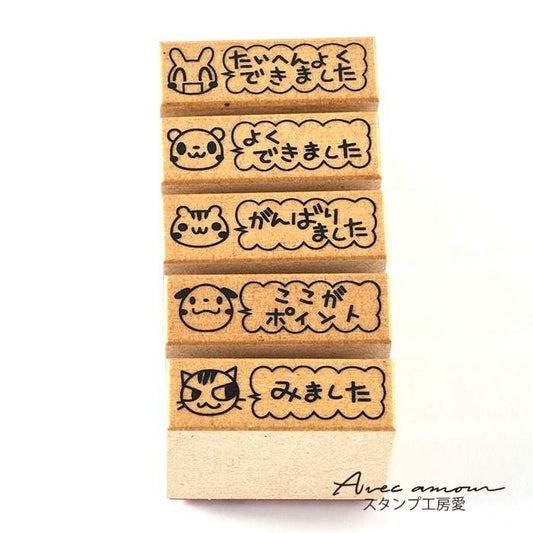 たいへんよく
できました
よく
できました
がんばり
ました
ここが
ポイント
みました
Avec amour
スタンプ工房愛